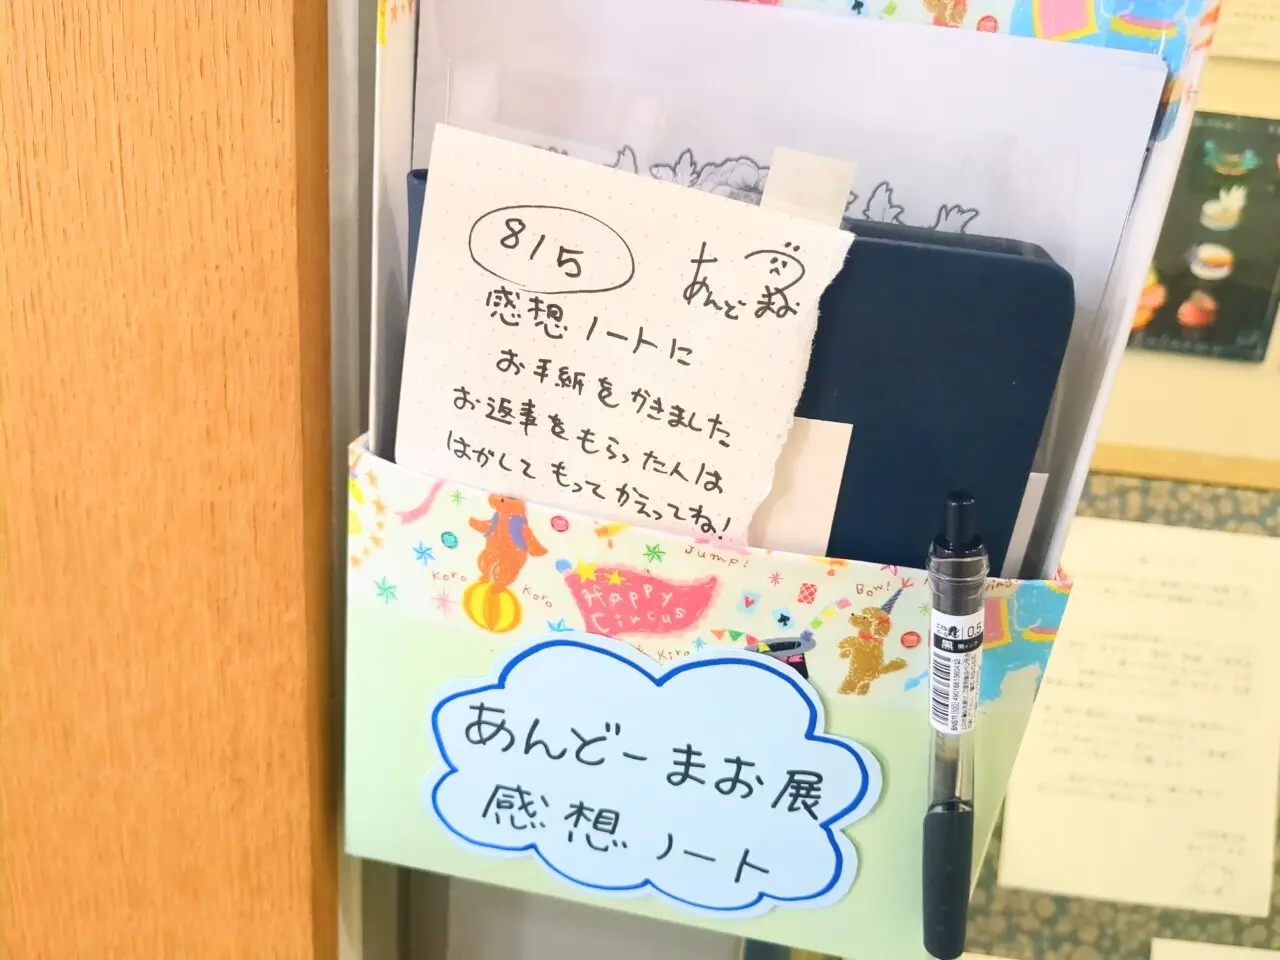 8/5
あんど まお
感想ノートに
お手紙をかきました
お返事をもらった人は
はがしてもってかえってね!
Jump!
Koro
Koro
Happy
Circus
Bow!
Kiro
0.5
黒
あんどーまお展
感想ノート